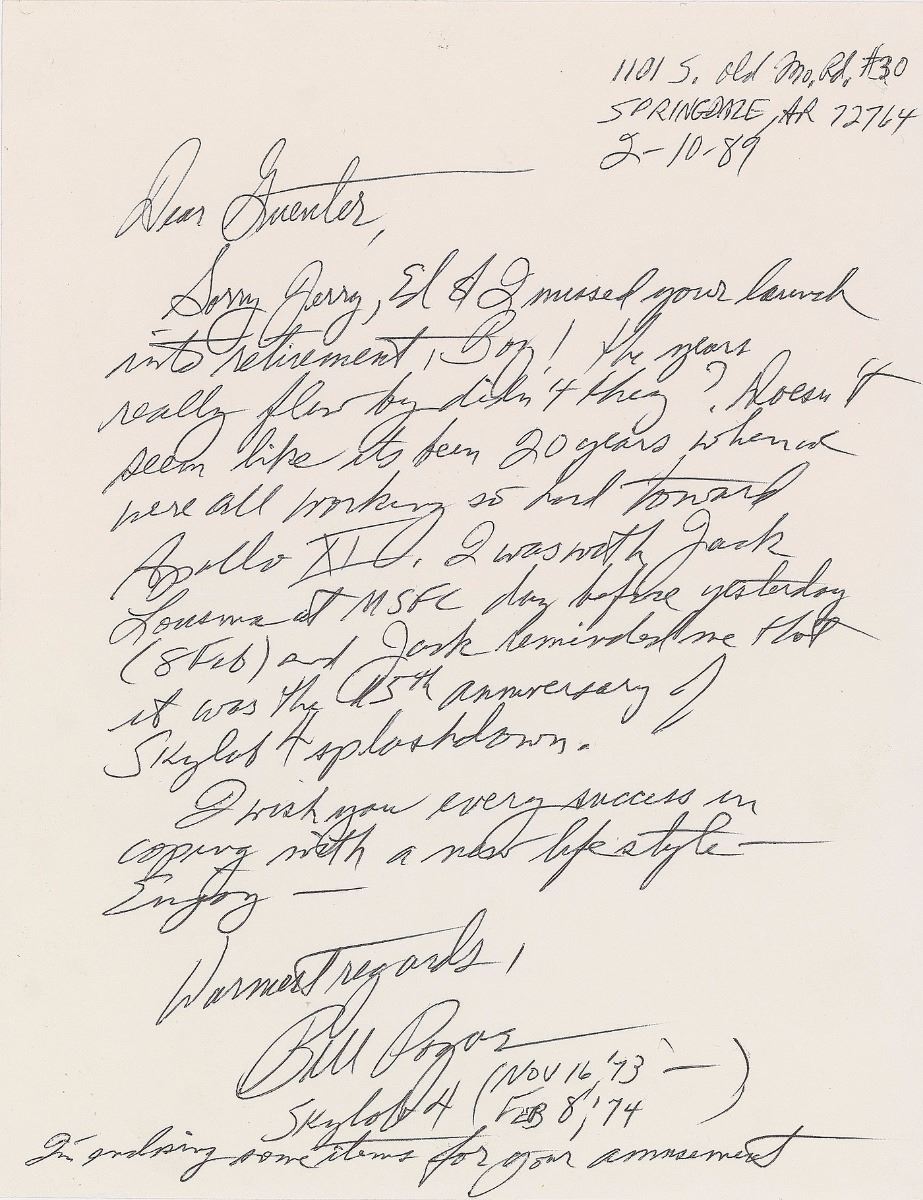 1101 S. Old Mo. Rd. #30
SPRINGDALE, AR 72764
2-10-89
Dear Guenter,
Sorry Jerry, Ed & I missed your launch
into retirement, Boy! the years
really flew by didn't they? Doesn't
seem like its been 20 years when we
were all working so hard toward
Apollo XI. I was with Jack
Lousma at MSFC day before yesterday
(8 Feb) and Jack reminded me that
it was the 15th anniversary of
Skylab 4 splashdown.
I wish you every success in
coping with a new lifestyle —
Enjoy —
Warmest regards,
Bill Pogue
Skylab 4 (NOV 16, '73 —
FEB 8, '74)
I'm enclosing some items for your amusement